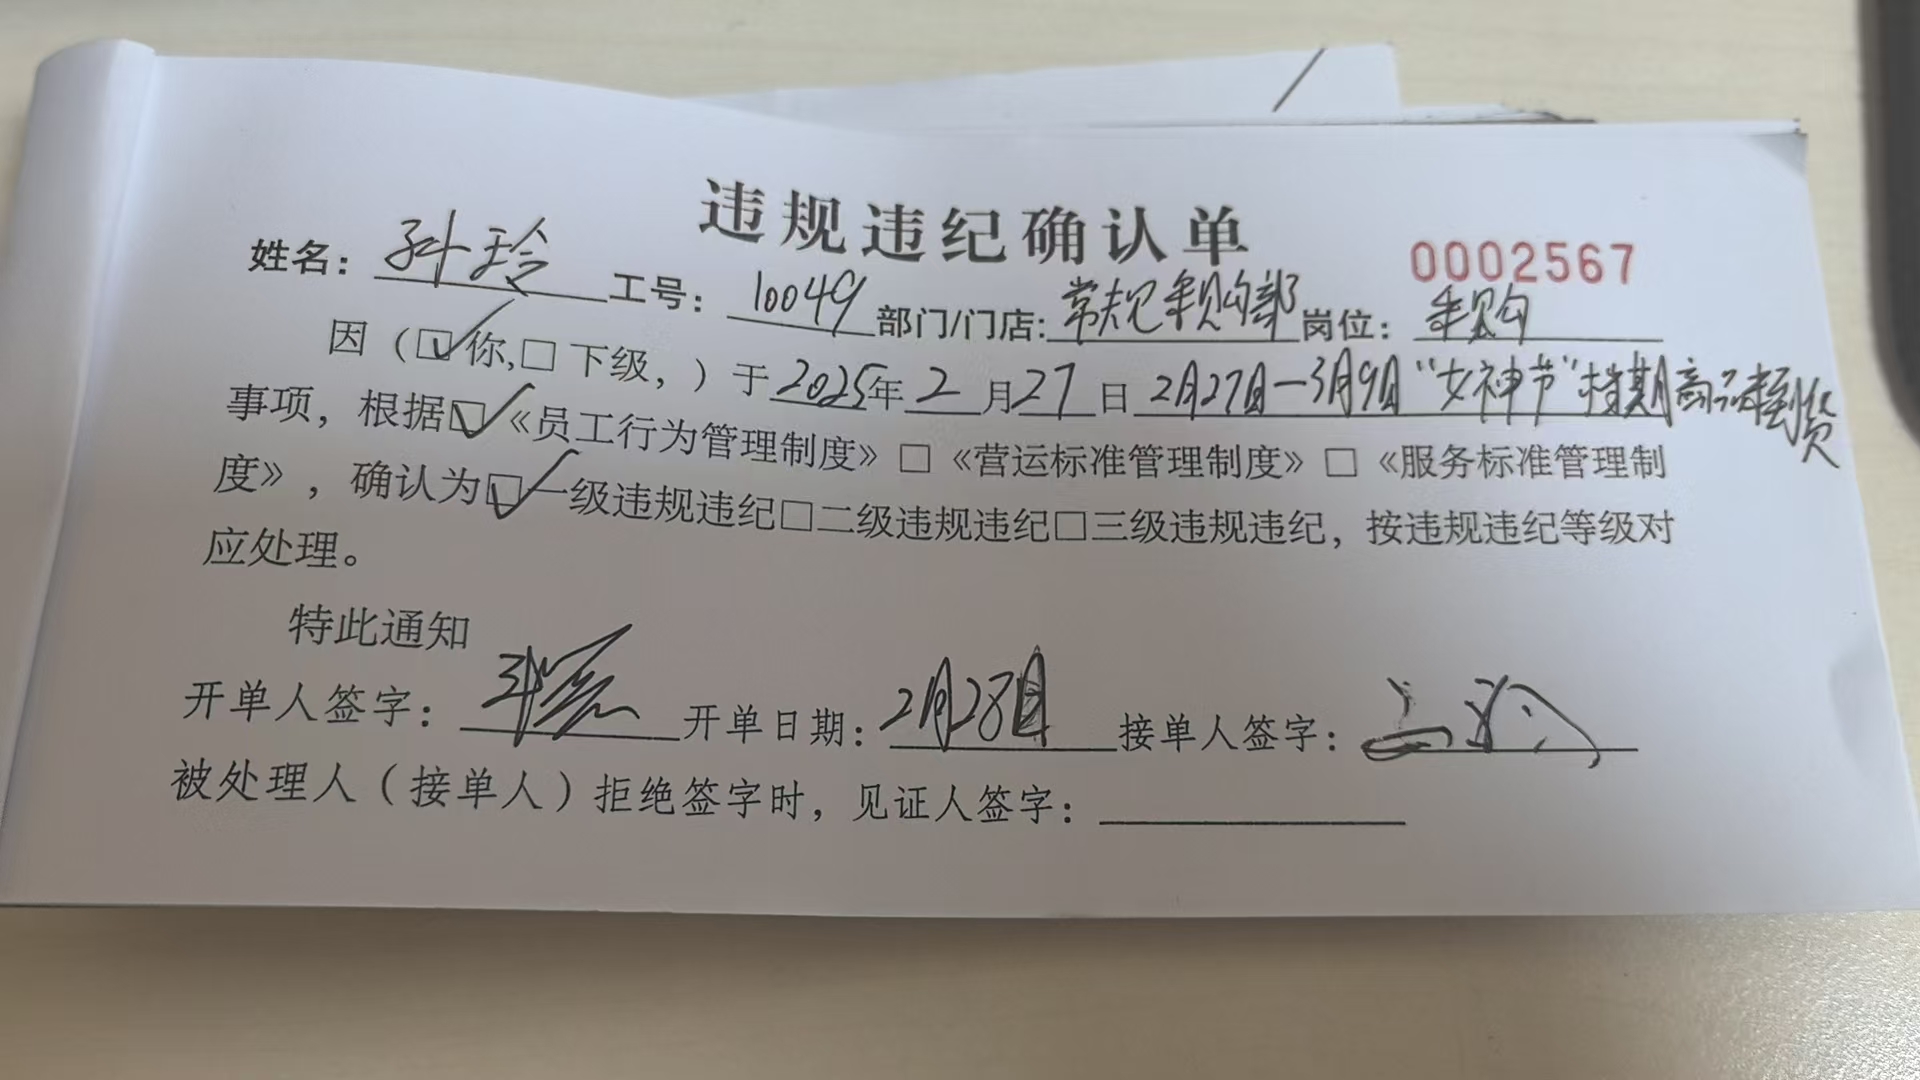 违规违纪确认单
0002567
姓名：孙玲 工号：10049 部门/门店：常规采购部 岗位：采购
因（☑你,□下级，）于2025年2月27日2月27日—3月9日“女神节”档期商品未到货
事项，根据☑《员工行为管理制度》□《营运标准管理制度》□《服务标准管理制
度》，确认为☑一级违规违纪□二级违规违纪□三级违规违纪，按违规违纪等级对
应处理。
特此通知
开单人签字： 开单日期：2月28日 接单人签字：
被处理人（接单人）拒绝签字时，见证人签字：